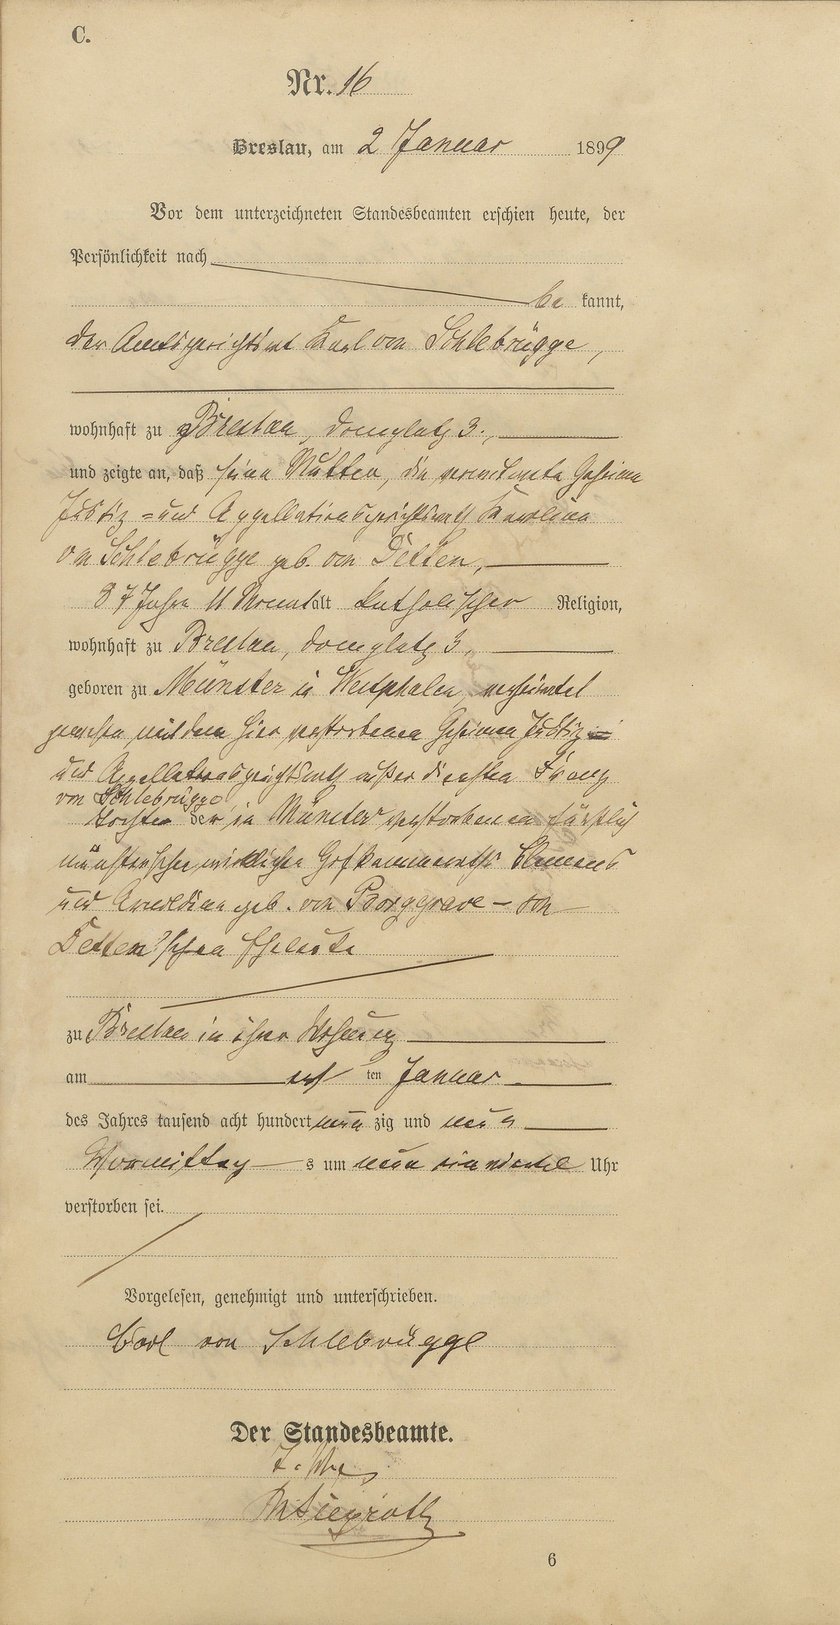 C.
Nr. 16
Breslau, am 2 Januar 1899
Vor dem unterzeichneten Standesbeamten erschien heute, der
Persönlichkeit nach
be kannt,
der Amtsgerichtsrat Karl von Schlebrügge,
wohnhaft zu Breslau, Domplatz 3.,
und zeigte an, daß seine Mutter, die verwitwete Geheime
Justiz- und Appellationsgerichtsrath Karoline
von Schlebrügge geb. von Detten,
87 Jahre 11 Monat alt katholischer Religion,
wohnhaft zu Breslau, Domplatz 3,
geboren zu Münster in Westphalen, verheiratet
gewesen mit dem hier verstorbenen Geheimen Justiz-
und Appellationsgerichtsrath außer Diensten Franz
von Schlebrügge
Tochter der in Münster verstorbenen fürstlich
münsterschen wirklichen Hofkammerraths Clemens
und geb. von Borggrave - von
Detten'schen Eheleute
zu Breslau in ihrer Wohnung
am ersten Januar
des Jahres tausend acht hundert neunzig und neun
Vormittags um neun ein viertel Uhr
verstorben sei.
Vorgelesen, genehmigt und unterschrieben.
Carl von Schlebrügge
Der Standesbeamte.
6